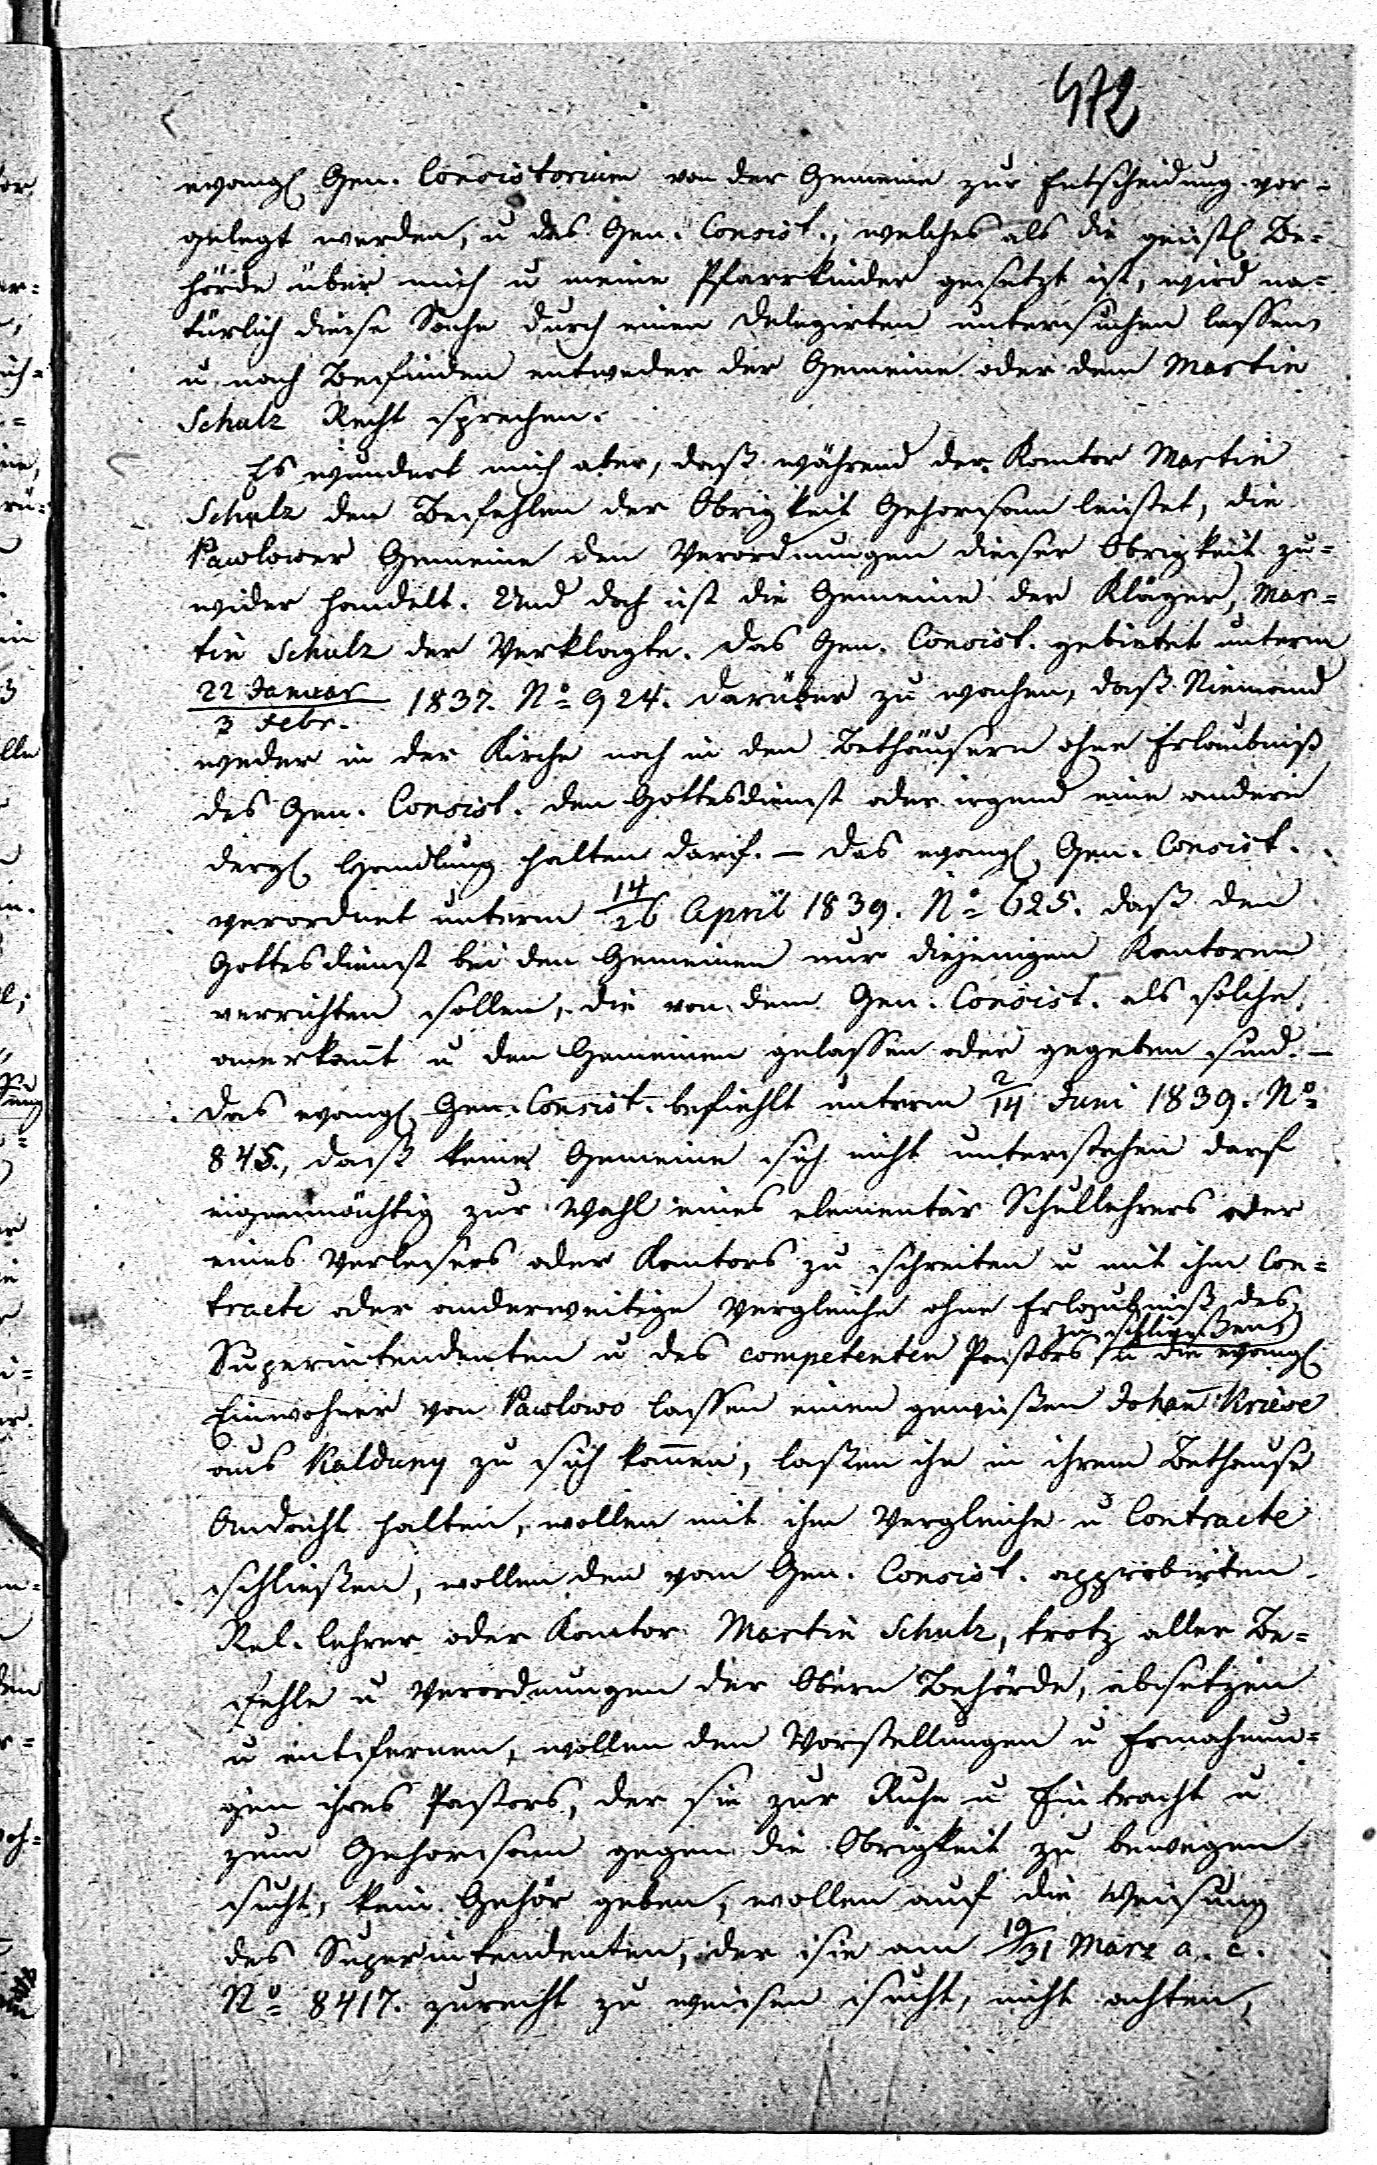 472
evangl. Gen. Consistorium von der Gemeine zur Entscheidung vor=
gelegt werden, u das Gen. Consist., welches als die geistl. Be=
hörde über mich u meine Pfarrkinder gesetzt ist, wird na=
türlich diese Sache durch einen Delegirten untersuchen lassen
u nach Befinden entweder der Gemeine oder dem Martin
Schulz Recht sprechen.
Es wundert mich aber, daß während der Kantor Martin
Schulz den Befehlen der Obrigkeit Gehorsam leistet, die
Pawlower Gemeine den Verordnungen dieser Obrigkeit zu=
wider handelt. Und doch ist die Gemeine der Kläger, Mar=
tin Schulz der Verklagte. Das Gen. Consist. gebietet unterm
22 Januar / 3 Febr. 1837. No 924. darüber zu wachen, daß Niemand
weder in der Kirche noch in den Bethäusern ohne Erlaubniß
des Gen. Consist. den Gottesdienst oder irgend eine andere
dergl. Handlung halten darf. — Das evangl. Gen. Consist.
verordnet unterm 14/26 April 1839. No 625. daß den
Gottesdienst bei den Gemeinen nur diejenigen Kantoren
verrichten sollen, die von dem Gen. Consist. als solche
anerkannt u den Gemeinen gelassen oder gegeben sind. —
Das evangl. Gen. Consist. befiehlt unterm 2/14 Juni 1839. No
845., daß keine Gemeine sich nicht unterstehen darf
eigenmächtig zur Wahl eines elementär Schullehrers oder
eines Verlesers oder Kantors zu schreiten u mit ihm Con=
tracte oder anderweitige Vergleiche ohne Erlaubniß des
Superintendenten u des competenten Pastors zu schließen, u die evangl.
Einwohner von Pawlowo lassen einen gewißen Johann Kriese
aus Kalduny zu sich kommen, laßen ihn in ihrem Bethause
Andacht halten, wollen mit ihm Vergleiche u Contracte
schließen, wollen den vom Gen. Consist. approbirten
Rel. lehrer oder Kantor Martin Schulz, trotz aller Be=
fehle u Verordnungen der Obern Behörde, absetzen
u entfernen, wollen den Vorstellungen u Ermahnun=
gen ihres Pastors, der sie zur Ruhe u Eintracht u
zum Gehorsam gegen die Obrigkeit zu bewegen
sucht, kein Gehör geben, wollen auf die Weisung
des Superintendenten, der sie am 19/31 März a. c.
No 8417. zurecht zu weisen sucht, nicht achten,